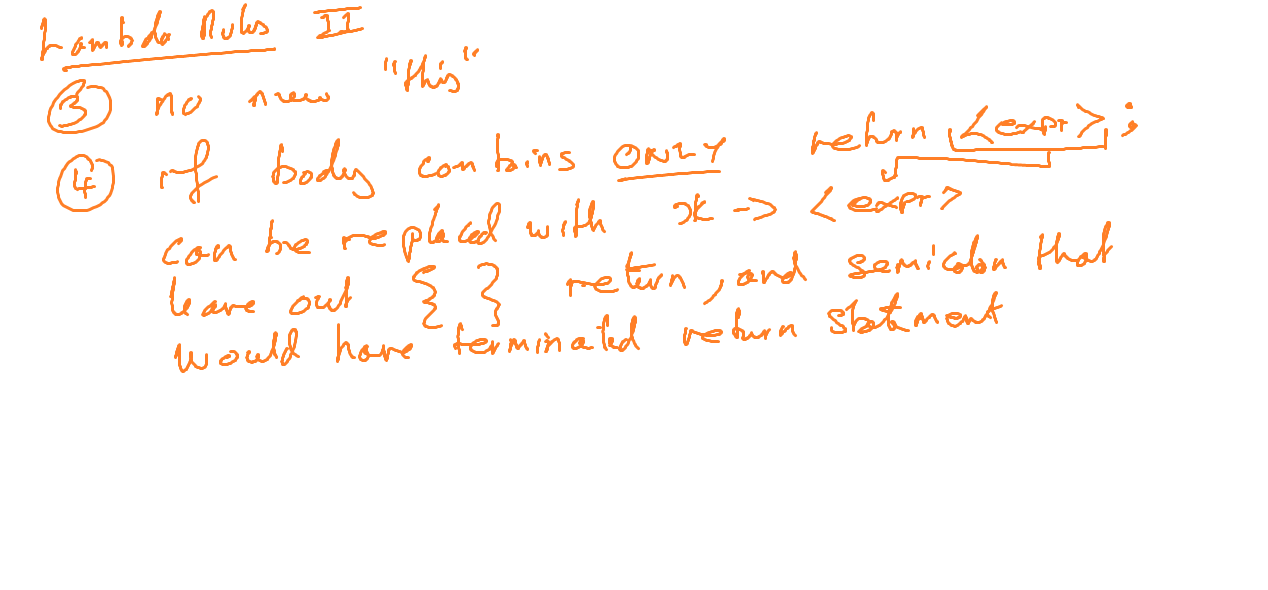 Lambda Rules II
③ no new "this"
④ if body contains ONLY return <expr>;
can be replaced with x -> <expr>
leave out { } return, and semicolon that
would have terminated return statement